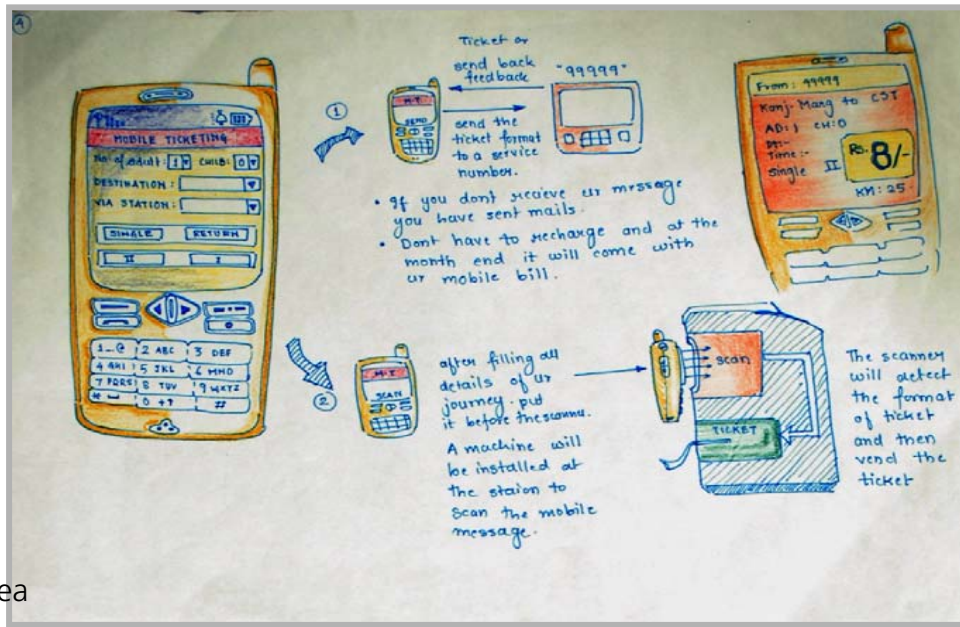 A
MOBILE TICKETING
No. of adult: 1 CHILD: 0
DESTINATION:
VIA STATION:
SINGLE RETURN
II I
1 2 ABC 3 DEF
4 GHI 5 JKL 6 MNO
7 PQRS 8 TUV 9 WXYZ
* 0 + #
1
Ticket or
send back
feedback
"99999"
M-T
SEND
send the
ticket format
to a service
number.
• If you dont recieve ur message
you have sent mails.
• Dont have to recharge and at the
month end it will come with
ur mobile bill.
From: 99999
Kanj. Marg to CST
AD: 1 CH: 0
Dt:-
Time:-
Single II
Rs. 8/-
KM: 25
2
M-T
SCAN
after filling all
details of ur
journey. put
it before the scanner.
A machine will
be installed at
the staion to
scan the mobile
message.
scan
TICKET
The scanner
will detect
the format
of ticket
and then
vend the
ticket
ea